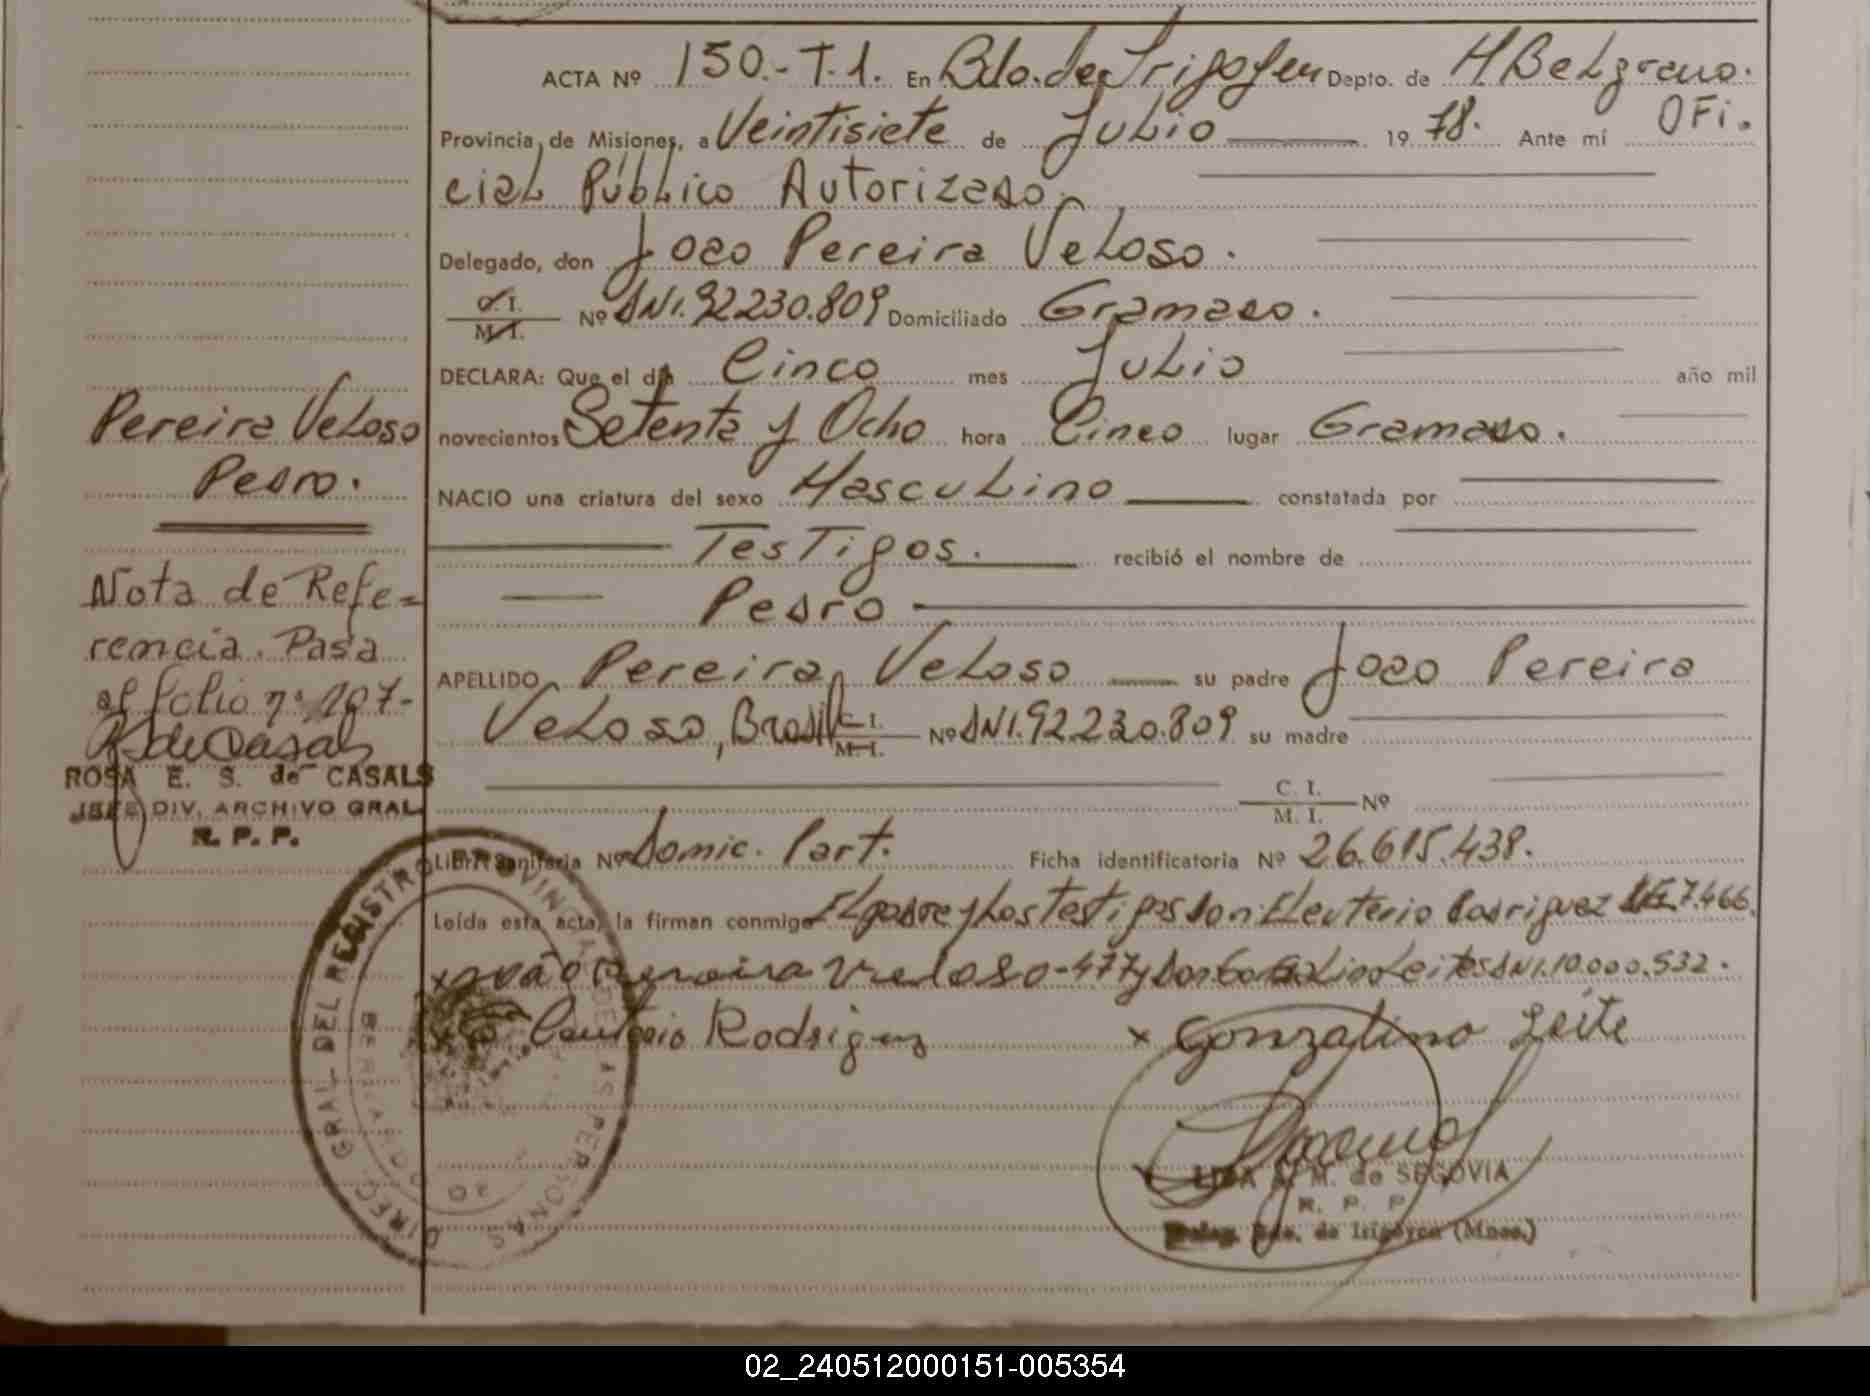 ACTA Nº 150.- T.1. En Bdo. de Irigoyen Depto. de M Belgrano.
Provincia de Misiones, a Veintisiete de Julio 1978. Ante mí OFi.
cial Público Autorizado.
Delegado, don Joao Pereira Veloso.
C.I. M.I. Nº DNI. 92230.809 Domiciliado Gramado.
DECLARA: Que el día Cinco mes Julio año mil
novecientos Setenta y Ocho hora Cinco lugar Gramado.
NACIO una criatura del sexo Masculino constatada por
Testigos. recibió el nombre de
Pedro
APELLIDO Pereira Veloso su padre Joao Pereira
Veloso, Brasil C.I. M.I. Nº DNI. 92.230.809 su madre
C. I. M. I. Nº
Libr. Sanitaria Nº Domic. Part. Ficha identificatoria Nº 26.615.438.
Leída esta acta, la firman conmigo El padre y los testigos don: Eleuterio Rodriguez 7.466.
x João Pereira Veloso -477 y Don Leites DNI. 10.000.532.
x Rodrigues x Gonzalino Leite
LIDA S. M. de SEGOVIA
R. P. P.
Deleg. Bdo. de Irigoyen (Mnes.)
Pereira Veloso
Pedro.
Nota de Refe=
rencia. Pasa
al folio nº 207-
R S de Casals
ROSA E. S. de CASALS
JEFE DIV. ARCHIVO GRAL
R. P. P.
DIREC. GRAL. DEL REGISTRO PROVINCIAL DE LAS PERSONAS
02_240512000151-005354